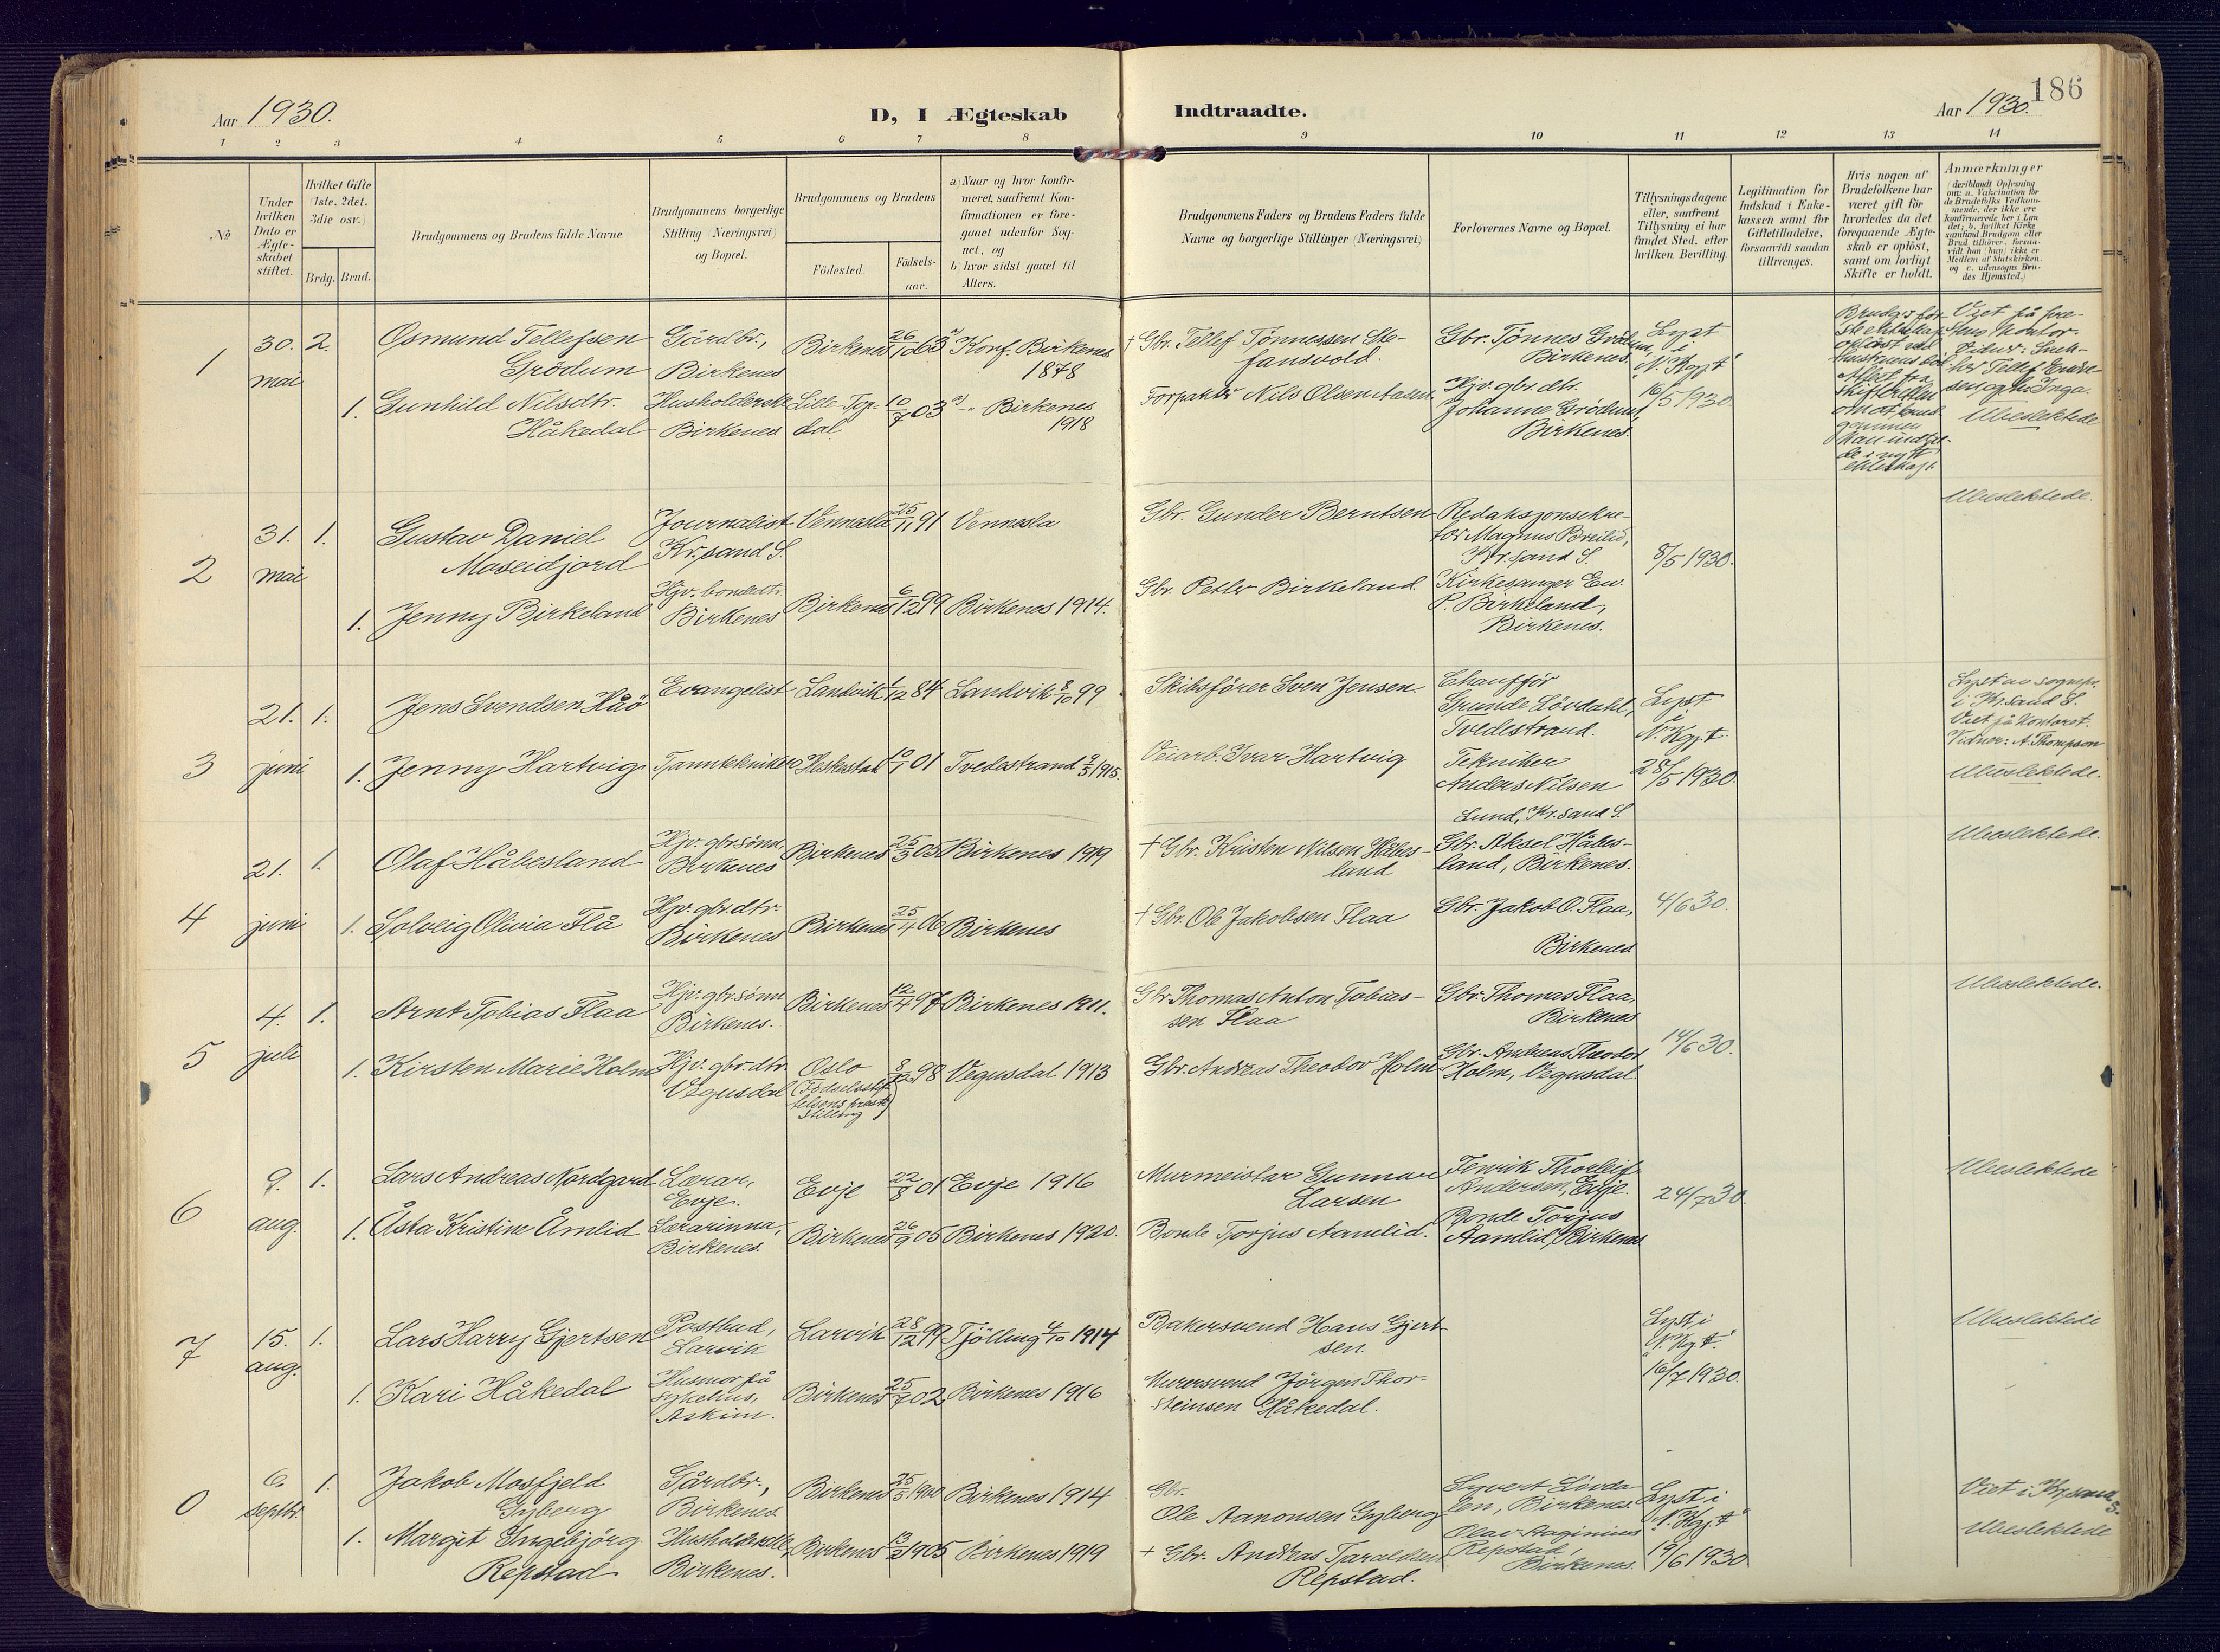 186
Aar 1930.
D, I Ægteskab
Indtraadte.
Aar 1930.
1 2 3 4 5 6 7 8 9 10 11 12 13 14
No
Under
hvilken
Dato er
Ægte-
skabet
stiftet.
Hvilket Gifte
(1ste, 2det,
3die osv.)
Brdg. Brud.
Brudgommens og Brudens fulde Navne
Brudgommens borgerlige
Stilling (Næringsvei)
og Bopæl.
Brudgommens og Brudens
Födested.
Födsels-
aar.
a) Naar og hvor konfir-
meret, saafremt Kon-
firmationen er fore-
gaaet udenfor Sog-
net, og
b) hvor sidst gaaet til
Alters.
Brudgommens Faders og Brudens Faders fulde
Navne og borgerlige Stillinger (Næringsvei)
Forlovernes Navne og Bopæl.
Tillysningsdagene
eller, saafremt
Tillysning ei har
fundet Sted, efter
hvilken Bevilling.
Legitimation for
Indskud i Enke-
kassen samt for
Giftetilladelse,
forsaavidt saadan
tiltrænges.
Hvis nogen af
Brudefolkene har
været gift för
hvorledes da det
foregaaende Ægte-
skab er oplöst,
samt om lovligt
Skifte er holdt.
Anmærkninger
(deriblandt Oplysning
om: a. Vakcination for
de Brudefolks Vedkom-
mende, der ikke ere
konfirmerede her i Lan-
det; b. hvilket Kirke-
samfund Brudgom eller
Brud tilhörer, forsaa-
vidt han (hun) ikke er
Medlem af Statskirken
og c. udensogns Bru-
des Hjemsted.)
1
30.
mai
2.
Osmund Tellefsen
Grödum
Gårdbr.,
Birkenes
Birkenes
26/10 63
a) Konf. Birkenes
1878
† Gbr. Tellef Tönnessen Ste-
fansvold.
Gbr. Tönnes Grödum,
Birkenes.
Lyst
i
"N. Kgt"
16/5 1930
1.
Gunhild Nilsdtr.
Håkedal
Husholderske
Birkenes
Lille-Top-
dal
10/7 03
a) -"- Birkenes
1918
Forpakter Nils Olsen
Hjv. gbr. dtr.
Johanne Grödum,
Birkenes.
ste ekteskap
oplöst ved
Attest fra
skifteretten
kan indtre-
de i nytt
ekteskap.
Viet på pre-
stens kontor.
Ubeslektede
2
31.
mai
1.
Gustav Daniel
Moseidjord
Journalist
Kr.sand S.
Vennesla
25/11 91
Vennesla
Gbr. Gunder Berntsen
Redaksjonsekre-
tær Magnus Breilid,
Kr.sand S.
8/5 1930.
Ubeslektede.
1.
Jenny Birkeland
Hjv. bondedtr.
Birkenes
Birkenes
6/12 99
Birkenes 1914.
Gbr. Petter Birkeland.
Kirkesanger Ew.
P. Birkeland,
Birkenes.
3
21.
juni
1.
Jens Svendsen Håö
Evangelist
Landvik
1/12 84
Landvik 8/10 99
Skibsförer Sven Jensen.
Chaufför
Grunde Lövdahl,
Tvedestrand.
Lyst
"N. Kgt.
28/5 1930.
Lyst av sognepr.
i Kr.sand S.
Viet på kontoret.
Vidner: A. Thompson
Ubeslektede.
1.
Jenny Hartvig
Tanntekniker
Heskestad
10/1 01
Tvedestrand 2/5 1915.
Veiarb. Ivar Hartvig
Tekniker
Anders Nilsen
Lund, Kr.sand S.
4
21.
juni
1.
Olaf Håbesland
Hjv. gbr.sönn.
Birkenes
Birkenes
25/3 05
Birkenes 1919
† Gbr. Kristen Nilsen Håbes-
land
Gbr. Aksel Håbes-
land, Birkenes.
4/6 30.
Ubeslektede.
1.
Solveig Olivia Flå
Hjv. gbr.dtr.
Birkenes
Birkenes
25/4 06
Birkenes
† Gbr. Ole Jakobsen Flaa
Gbr. Jakob O. Flaa,
Birkenes
5
4.
juli
1.
Arnt Tobias Flaa
Hjv. gbr.sönn
Birkenes.
Birkenes
12/4 97
Birkenes 1911.
Gbr. Thomas Anton Tobias-
sen Flaa
Gbr. Thomas Flaa,
Birkenes
14/6 30.
Ubeslektede.
1.
Kirsten Marie Holm
Hjv. gbr.dtr
Vegusdal
Oslo
(Födselsstif-
telsens preste-
stilling)
8/12 98
Vegusdal 1913
Gbr. Andreas Theodor Holm
Gbr. Andreas Theodor
Holm, Vegusdal
6
9.
aug.
1.
Lars Andreas Nordgard
Lærar,
Evje.
Evje
22/8 01
Evje 1916
Murmeister Gunnar
Larsen
Fenrik Thorleif
Andersen, Evje.
24/7 30
Ubeslektede
1.
Åsta Kristine Åmlid
Lærarinna,
Birkenes.
Birkenes
26/9 05
Birkenes 1920.
Bonde Torjus Aamlid.
Bonde Torjus
Aamlid, Birkenes
7
15.
aug.
1.
Lars Harry Gjertsen
Postbud,
Larvik
Larvik
28/12 99
Tjölling 4/10 1914
Bakersvend Hans Gjert-
sen.
Lyst i
"N. Kg.t."
16/7 1930.
Ubeslektede
1.
Kari Håkedal
Husmor på
sykehus,
Askim.
Birkenes
25/7 02
Birkenes 1916
Murersvend Jörgen Thor-
steinsen Håkedal.
0
6
septbr.
1.
Jakob Mosfjeld
Gyberg
Gårdbr.,
Birkenes
Birkenes
25/5 1900
Birkenes 1914
Gbr.
Ole Aanonsen Gyberg
Syvert Lövda-
len, Birkenes.
Lyst i
"N. Kgt"
19/6 1930
Viet i Kr.sand
S.
Ubeslektede
1.
Margit Ingebjörg
Repstad
Husholderske,
Birkenes.
Birkenes
1905
Birkenes 1919
+ Gbr. Andreas Taraldsen
Repstad.
Olav
Repstad,
Birkenes.